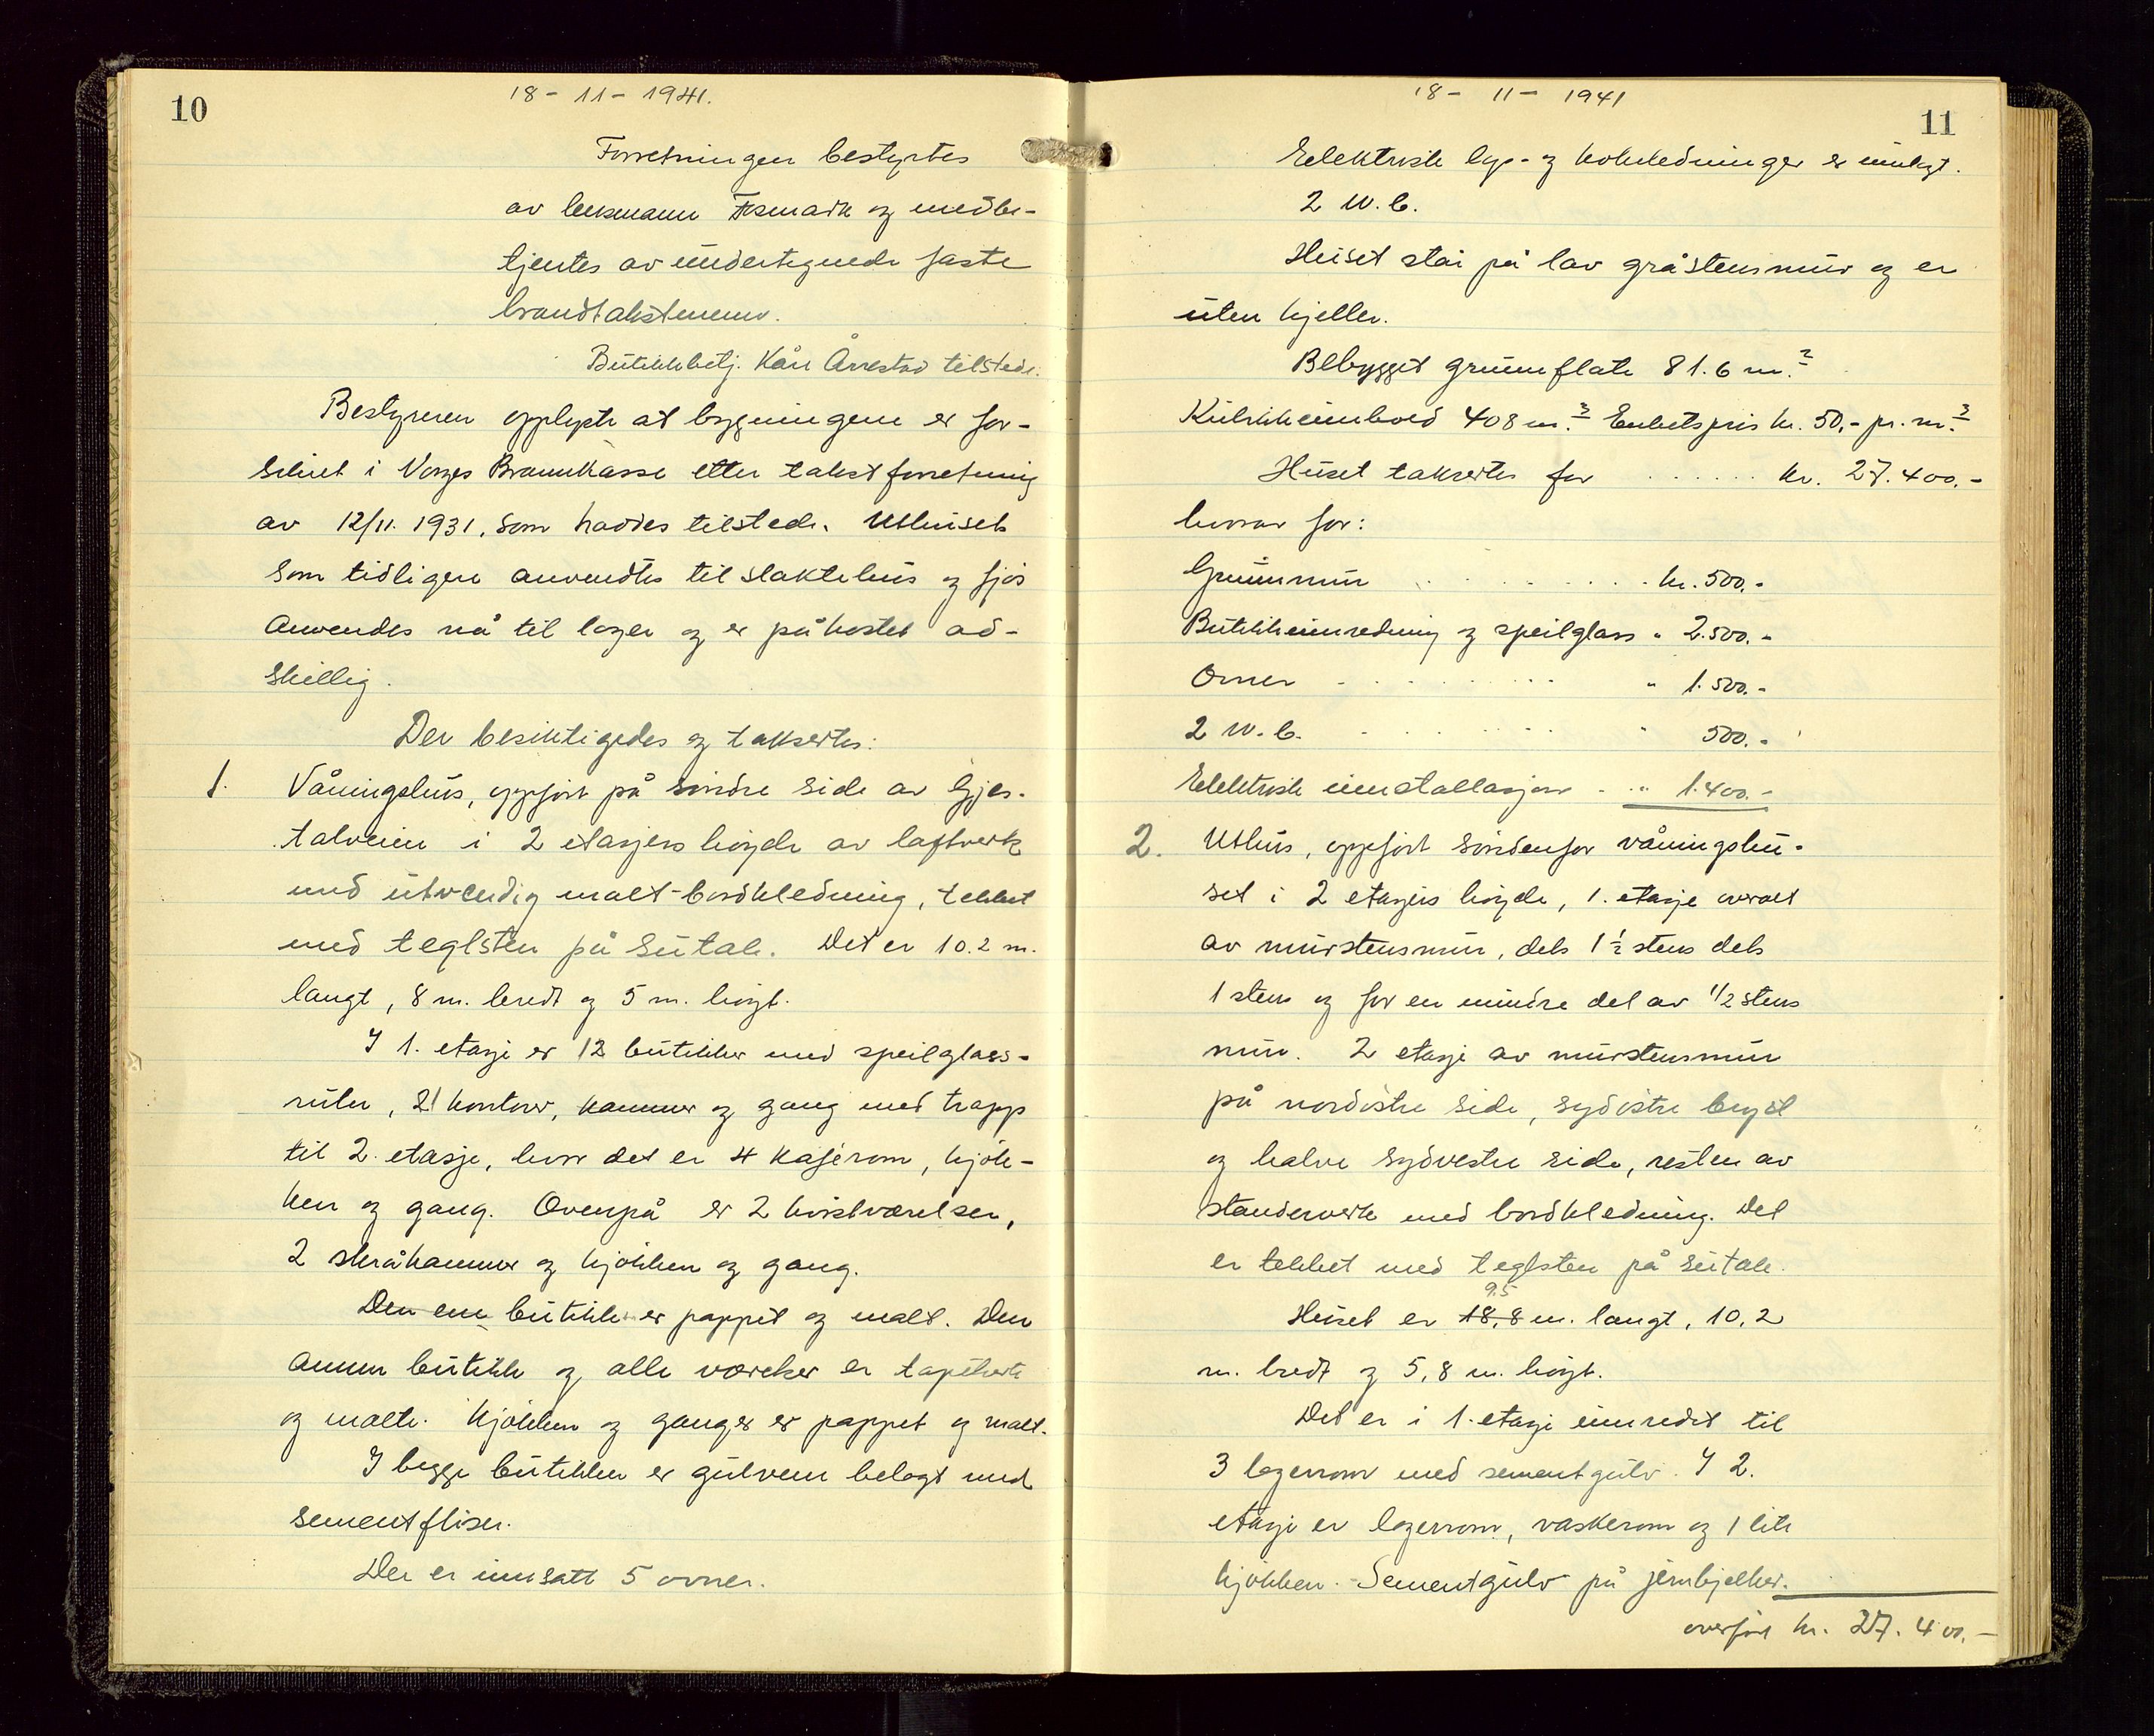 10
18 - 11 - 1941.
Forretningen bestyrtes
av lensmann Tismark og medbe-
tjentes av undertegnede faste
branntakstmenn.
Butikkbetj. Kåre Årrestad tilstede.
Bestyreren opplyste at bygningene er for-
sikret i Norges Brannkasse etter takstforretning
av 12/11. 1931, som haddes tilstede. Uthuset
som tidligere anvendtes til slaktehus og fjøs
anvendes nå til lager og er påkostet ad-
skillig.
Der besiktigedes og taksertes:
1. Våningshus, oppført på søndre side av Gjes-
talveien i 2 etasjers høyde av laftverk
med utvendig malt bordkledning, tekket
med teglsten på sutak. Det er 10.2 m.
langt, 8 m. bredt og 5 m. høyt.
I 1. etasje er 2 butikker med speilglass-
ruter, 2 kontorer, kammer og gang med trapp
til 2. etasje, hvor det er 4 kaférom, kjøk-
ken og gang. Ovenpå er 2 kvistværelser,
2 skråkammer og kjøkken og gang.
Den ene butikk er pappet og malt. Den
annen butikk og alle værelser er tapetserte
og malte. Kjøkken og ganger er pappet og malt.
I begge butikker er gulvene belagt med
sementfliser.
Der er innsatt 5 ovner.
18 - 11 - 1941
11
Elektriske lys- og kokeledninger er innlagt.
2 W.C.
Huset står på lav gråstensmur og er
uten kjeller.
Bebygget grunnflate 81.6 m.²
Kubikkinnhold 408 m.³ Enhetspris kr. 50,- pr. m.³
Huset taksertes for . . . . . . kr. 27.400.-
hvorav for:
Grunnmur . . . . . . . . . kr. 500.-
Butikkinnredning og speilglass " 2.500.-
Ovner . . . . . . . . . " 1.500.-
2 W.C. . . . . . . . . " 500.-
Elektrisk innstallasjon . . " 1.400.-
2. Uthus, oppført sønnenfor våningshu-
set i 2 etasjers høyde, 1. etasje overalt
av murstensmur, dels 1½ stens dels
1 stens og for en mindre del av 1/2 stens
mur. 2 etasje av murstensmur
på nordøstre side, sydøstre bryst
og halve sydvestre side, resten av
standerverk med bordkledning. Det
er tekket med teglsten på sutak.
9.5
Huset er 18,8 m. langt, 10,2
m. bredt og 5,8 m. høyt.
Det er i 1. etasje innredet til
3 lagerrom med sementgulv. I 2.
etasje er lagerrom, vaskerom og 1 lite
kjøkken. - Sementgulv på jernbjelker.
overført kr. 27.400.-